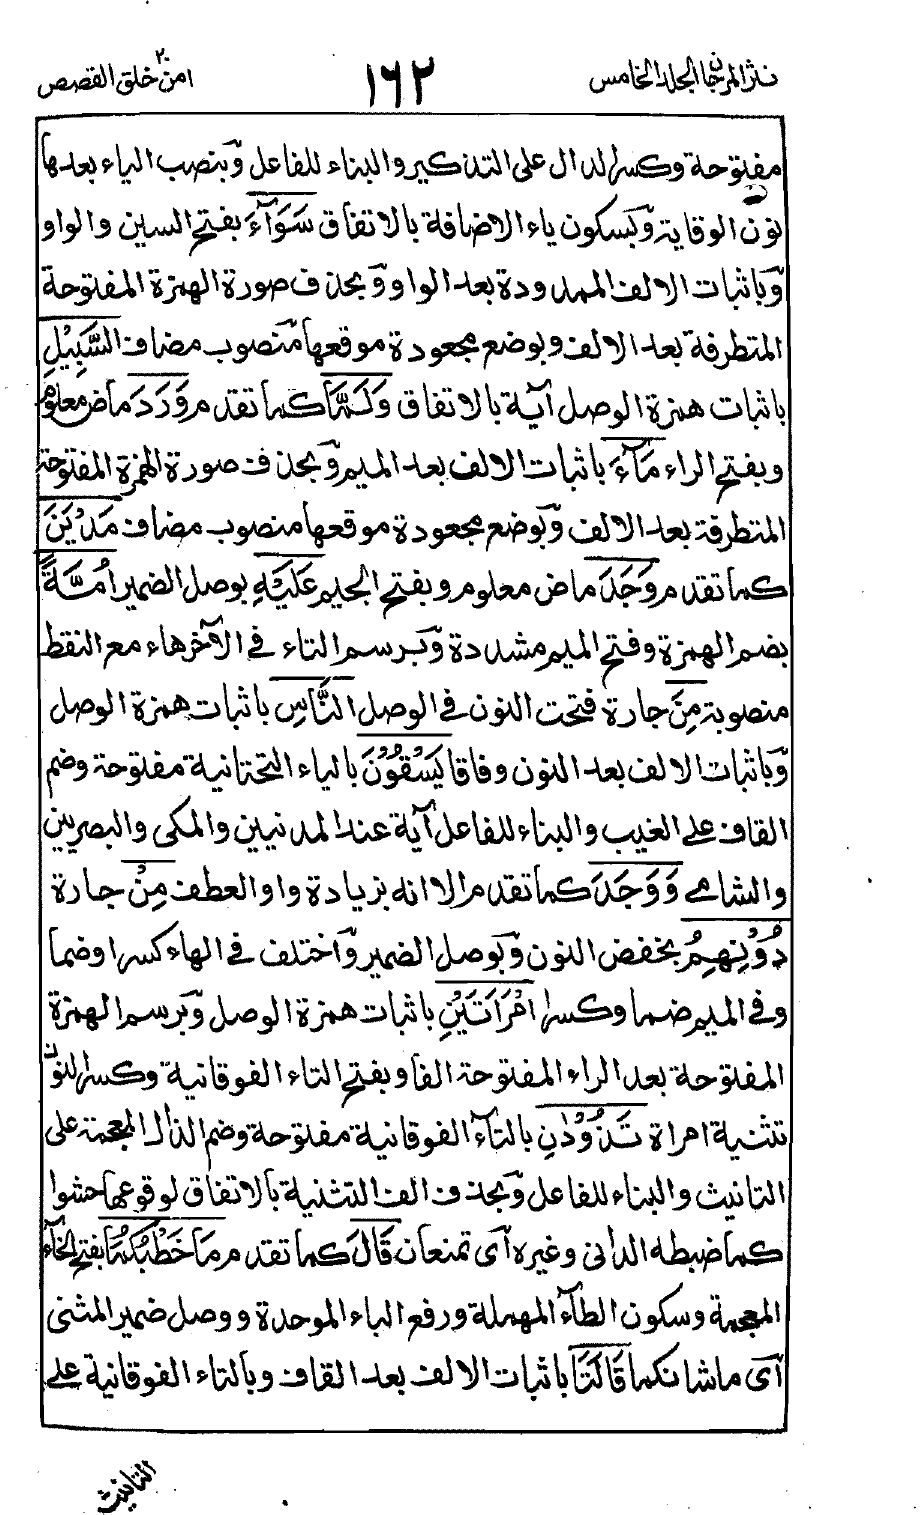 نثر المرجان الجلد الخامس
١٦٢
امن خلق ٢٠ القصص
مفتوحة وكسر الدال على التذكير والبناء للفاعل وبنصب الياء بعدها
نون الوقاية وبسكون ياء الاضافة بالاتفاق سَوَآءَ بفتح السين والواو
وباثبات الالف الممدودة بعد الواو وبحذف صورة الهمزة المفتوحة
المتطرفة بعد الالف وبوضع مجعودة موقعها منصوب مضاف السَّبِيْلِ
باثبات همزة الوصل آية بالاتفاق وَلَمَّا كما تقدم وَرَدَ ماض معلوم
وبفتح الراء مَآءَ باثبات الالف بعد الميم وبحذف صورة الهمزة المفتوحة
المتطرفة بعد الالف وبوضع مجعودة موقعها منصوب مضاف مَدْيَنَ
كما تقدم وَجَدَ ماض معلوم وبفتح الجيم عَلَيْهِ بوصل الضمير اُمَّةً
بضم الهمزة وفتح الميم مشددة وبرسم التاء في الآخر هاء مع النقط
منصوبة مِنَ جارة فتحت النون في الوصل النَّاسِ باثبات همزة الوصل
وباثبات الالف بعد النون وفاقا يَسْقُوْنَ بالياء التحتانية مفتوحة وضم
القاف على الغيب والبناء للفاعل آية عند المدنيين والمكى والبصريين
والشامي وَوَجَدَ كما تقدم الا انه بزيادة واو العطف مِنْ جارة
دُوْنِهِمُ بخفض النون وبوصل الضمير واختلف في الهاء كسرا وضما
وفي الميم ضما وكسرا امْرَاَتَيْنِ باثبات همزة الوصل وبرسم الهمزة
المفتوحة بعد الراء المفتوحة الفا وبفتح التاء الفوقانية وكسر النون
تثنية امراة تَذُوْدٰنِ بالتاء الفوقانية مفتوحة وضم الذال المعجمة على
التانيث والبناء للفاعل وبحذف الف التثنية بالاتفاق لوقوعها حشوا
كما ضبطه الداني وغيره اى تمنعان قَالَ كما تقدم مَا خَطْبُكُمَا بفتح الخاء
المعجمة وسكون الطاء المهملة ورفع الباء الموحدة ووصل ضمير المثنى
اى ما شانكما قَالَتَا باثبات الالف بعد القاف وبالتاء الفوقانية على
التانيث